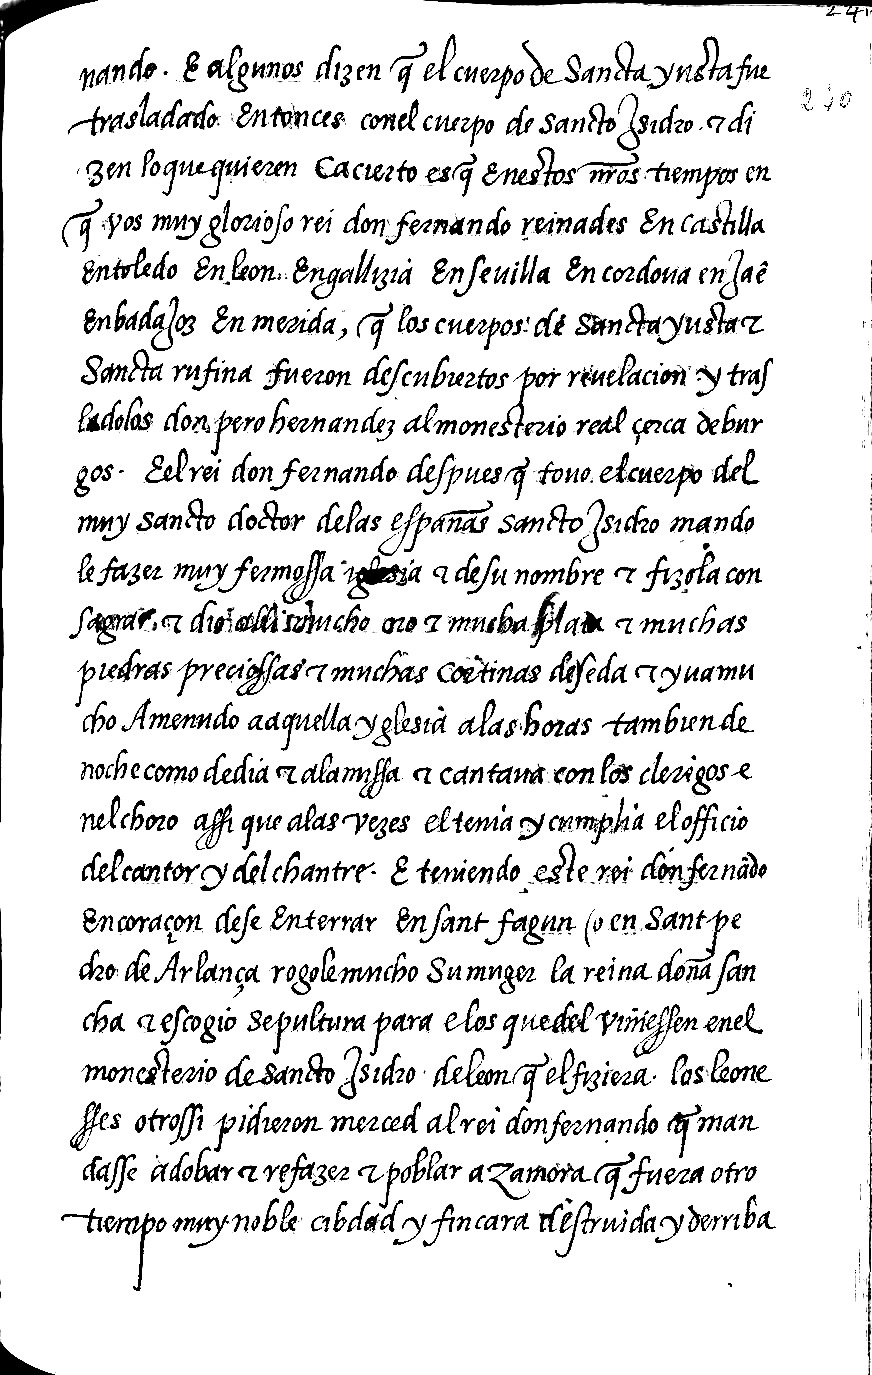 241
240
nando. E algunos dizen q̃ el cuerpo de Sancta yusta fue
trasladado Entonces conel cuerpo de sancto Jsidro. ⁊ di
zen loque quieren Ca cierto es q̃ Enestos nr̃os tiempos en
q̃ vos muy glorioso rei don fernando reinades En castilla
Entoledo En leon. Engallizia En seuilla En cordoua en Jaẽ
EnbadaJoz En merida, q̃ los cuerpos de Sancta yusta ⁊
Sancta rufina fueron descubiertos por reuelacion y tras
ladolos don pero hernandez al monesterio real çerca de bur
gos. E el rei don fernando despues q̃ touo el cuerpo del
muy sancto doctor delas españas sancto Jsidro mando
le fazer muy fermossa iglesia ⁊ desu nombre ⁊ fizola con
sagrar. ⁊ dio alli mucho oro ⁊ mucha plata ⁊ muchas
piedras preciossas ⁊ muchas cortinas deseda ⁊ yua mu
cho Amenudo a aquella yglesia alas horas tambien de
noche como dedia ⁊ ala missa ⁊ cantaua con los clerigos e
nel choro assi que alas vezes el tenia y cumplia el officio
del cantor y del chantre. E teniendo este rei don fernãdo
En coraçon dese Enterrar En sant fagun (o en Sant pe
dro de Arlança rogole mucho Su muger la reina doña san
cha ⁊ escogio sepultura para e los que del viniessen enel
monesterio de sancto Jsidro de leon q̃ el fiziera. los leone
sses otrossi pidieron merced al rei don fernando q̃ man
dasse adobar ⁊ refazer ⁊ poblar a Zamora q̃ fuera otro
tiempo muy noble cibdad y fincara destruida y derriba